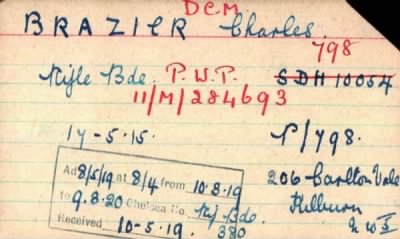 D C M
BRAZIER Charles.
798
Rifle Bde. P.W.P. S D H 10054
11/M/284693
17-5-15. P/798.
Ad 8/5/19 at 8/4 from 10.8.19
to 9.8.20 Chelsea No. Rif Bde.
Received 10-5-19. 380
206 Carlton Vale
Kilburn
N W